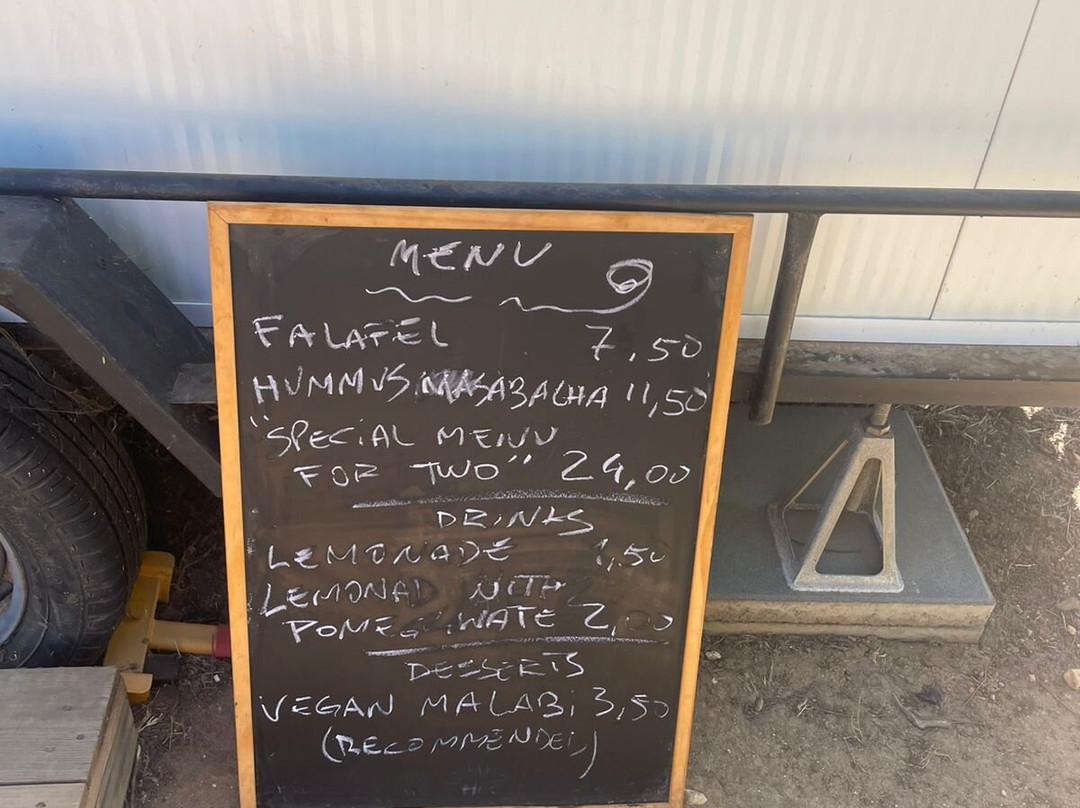 MENU
FALAFEL 7.50
HUMMUS MASABACHA 11,50
"SPECIAL MENU
FOR TWO" 24,00
DRINKS
LEMONADE 1,50
LEMONAD WITH
2,00
DESSERTS
VEGAN MALABi 3,50
(RECOMMENDED)